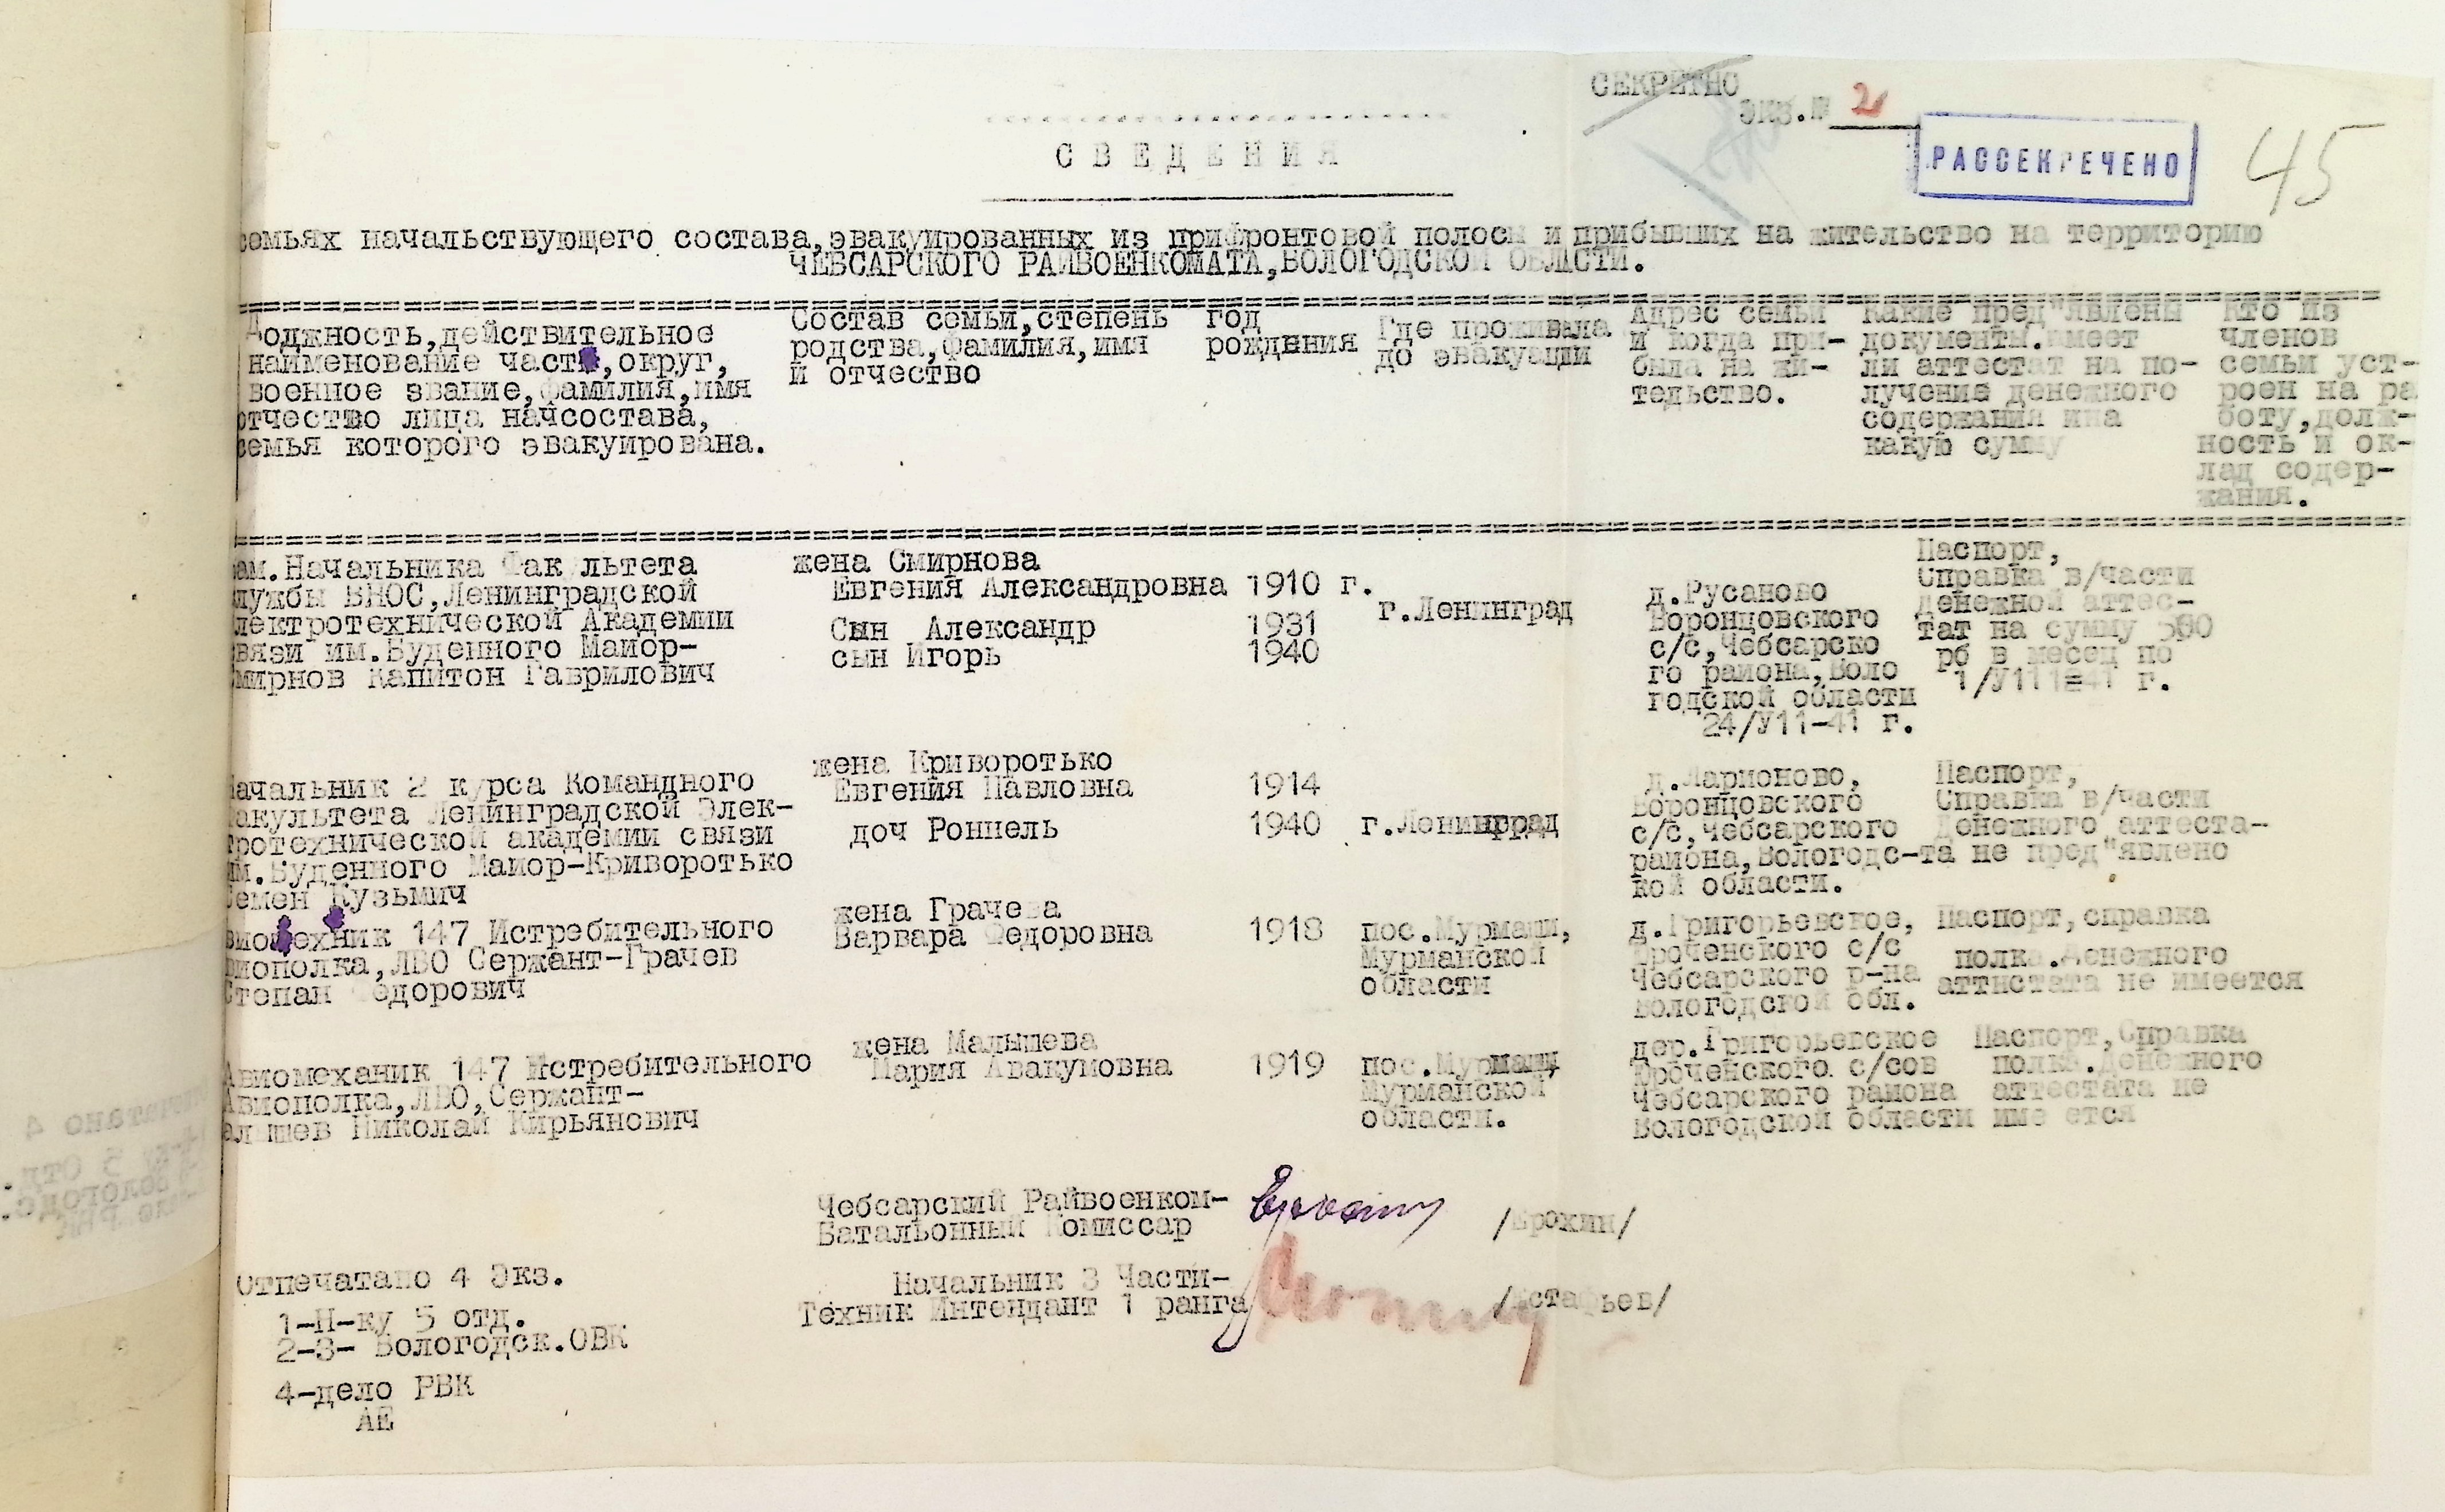 СЕКРЕТНО
экз.№ 2
РАССЕКРЕЧЕНО
45
СВЕДЕНИЯ
семьях начальствующего состава,эвакуированных из прифронтовой полосы и прибывших на жительство на территорию
ЧЕБСАРСКОГО РАЙВОЕНКОМАТА,ВОЛОГОДСКОЙ ОБЛАСТИ.
Должность,действительное
наименование части,округ,
военное звание,фамилия,имя
отчество лица начсостава,
семья которого эвакуирована.
Состав семьи,степень
родства,фамилия,имя
и отчество
год
рождения
Где проживала
до эвакуации
Адрес семьи
и когда при-
была на жи-
тельство.
Какие пред"явлены
документы.имеет
ли аттестат на по-
лучение денежного
содержания ина
какую сумму
Кто из
членов
семьи уст-
роен на ра
боту,долж-
ность и ок-
лад содер-
жания.
Зам.Начальника Фак льтета
службы ВНОС,Ленинградской
Электротехнической Академии
связи им.Буденного Майор-
Смирнов Капитон Гаврилович
жена Смирнова
Евгения Александровна 1910 г.
Сын Александр 1931
сын Игорь 1940
г.Ленинград
д.Русаново
Воронцовского
с/с,Чебсарско
го района,Воло
годской области
24/У11-41 г.
Паспорт,
Справка в/части
денежной аттес-
тат на сумму 500
рб в месец по
1/У111-41 г.
Начальник 2 курса Командного
факультета Ленинградской Элек-
тротехнической академии связи
им.Буденного Майор-Криворотько
Семен Кузьмич
жена Криворотько
Евгения Павловна 1914
доч Роннель 1940
г.Ленинград
д.Ларионово,
Воронцовского
с/с,Чебсарского
района,Вологодс-
кой области.
Паспорт,
Справка в/части
Денежного аттеста-
та не пред"явлено
Авиомеханик 147 Истребительного
Авиополка,ЛВО Сержант-Грачев
Степан Федорович
жена Грачева
Варвара Федоровна 1918
пос.Мурмаши,
Мурманской
области
д.Григорьевское,
Ероченского с/с
Чебсарского р-на
Вологодской обл.
Паспорт,справка
полка.Денежного
аттистата не имеется
Авиомеханик 147 Истребительного
Авиополка,ЛВО,Сержант-
Малышев Николай Кирьянович
жена Малышева
Мария Авакумовна 1919
пос.Мурмаши,
Мурманской
области.
дер.Григорьевское
Ероченского с/сов
Чебсарского района
Вологодской области
Паспорт,Справка
полка.Денежного
аттестата не
име ется
Чебсарский Райвоенком-
Батальонный Комиссар /Ерохин/
Начальник 3 Части-
Техник Интендант 1 ранга /Естафьев/
Отпечатано 4 Экз.
1-Н-ку 5 отд.
2-3- Вологодск.ОВК
4-дело РВК
АЕ